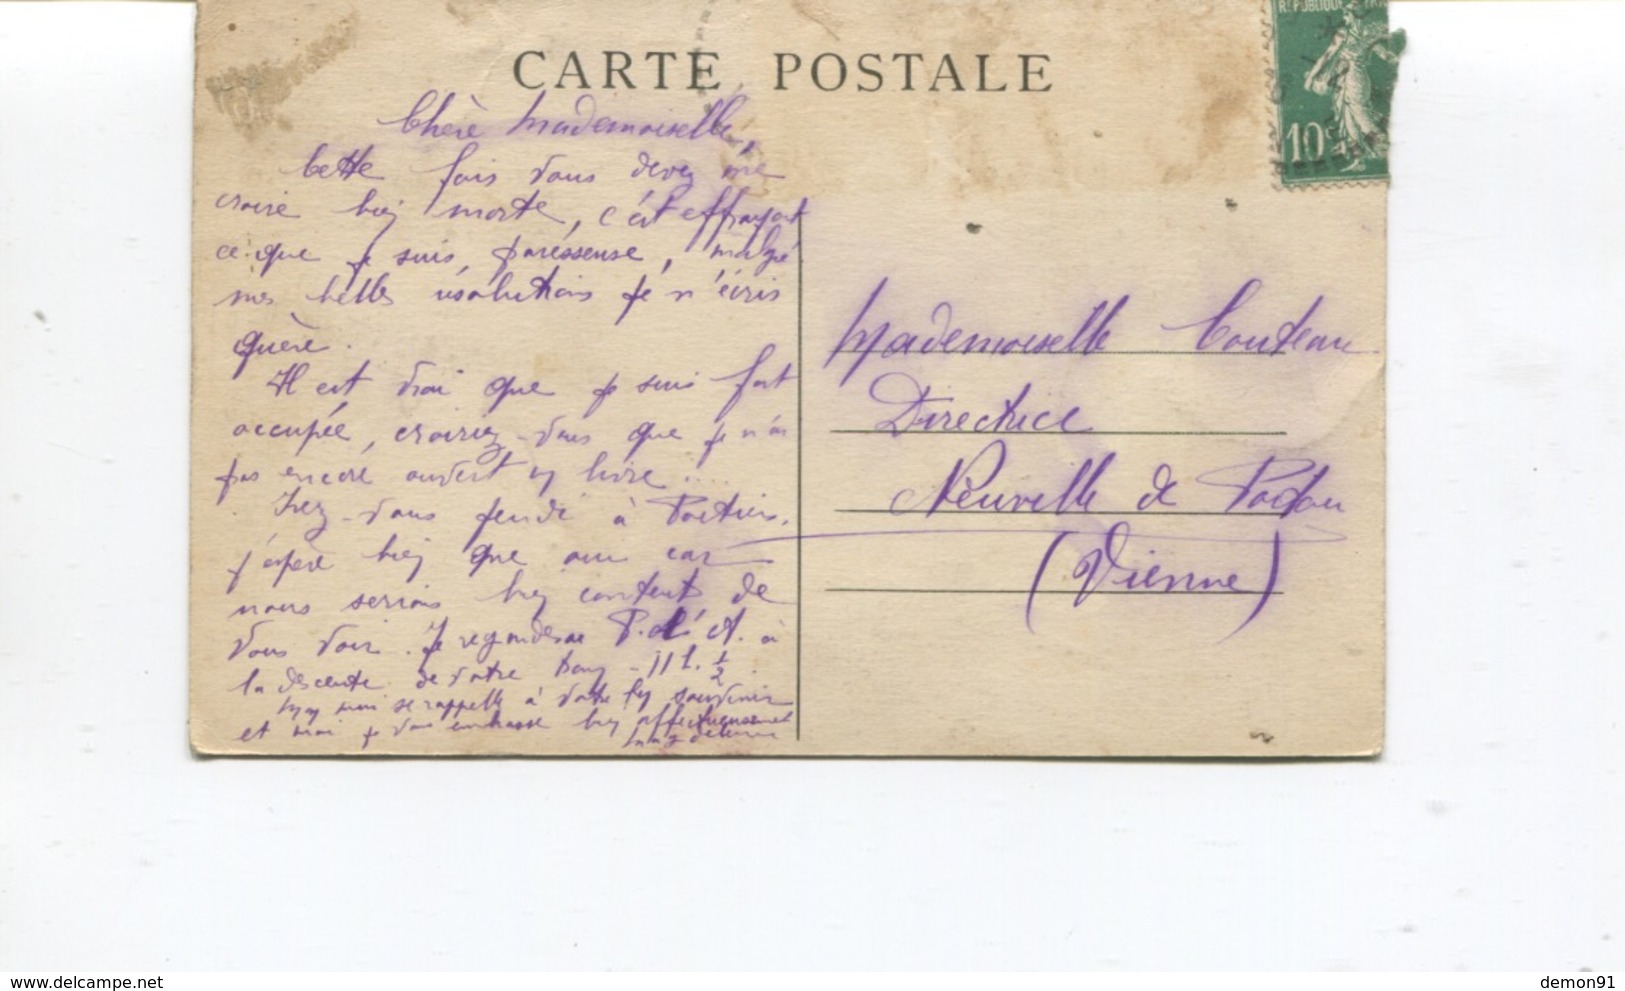 CARTE POSTALE
REPUBLIQUE
10c
Chère Mademoiselle,
Cette fois vous devez me
croire bien morte, c'est effrayant
ce que je suis paresseuse, malgré
mes belles résolutions je n'écris
guère.
Il est vrai que je suis fort
occupée, croiriez-vous que je n'ai
pas encore ouvert un livre ....
Irez-vous jeudi à Poitiers,
j'espère bien que oui car
nous serions bien contents de
vous voir. Je regarderai à
la descente de votre 11 h. 1/2
se rappelle à votre bon souvenir
et moi je vous embrasse bien affectueusement
Mademoiselle Couteau
Directrice
Neuville de Poitou
(Vienne)
demon91